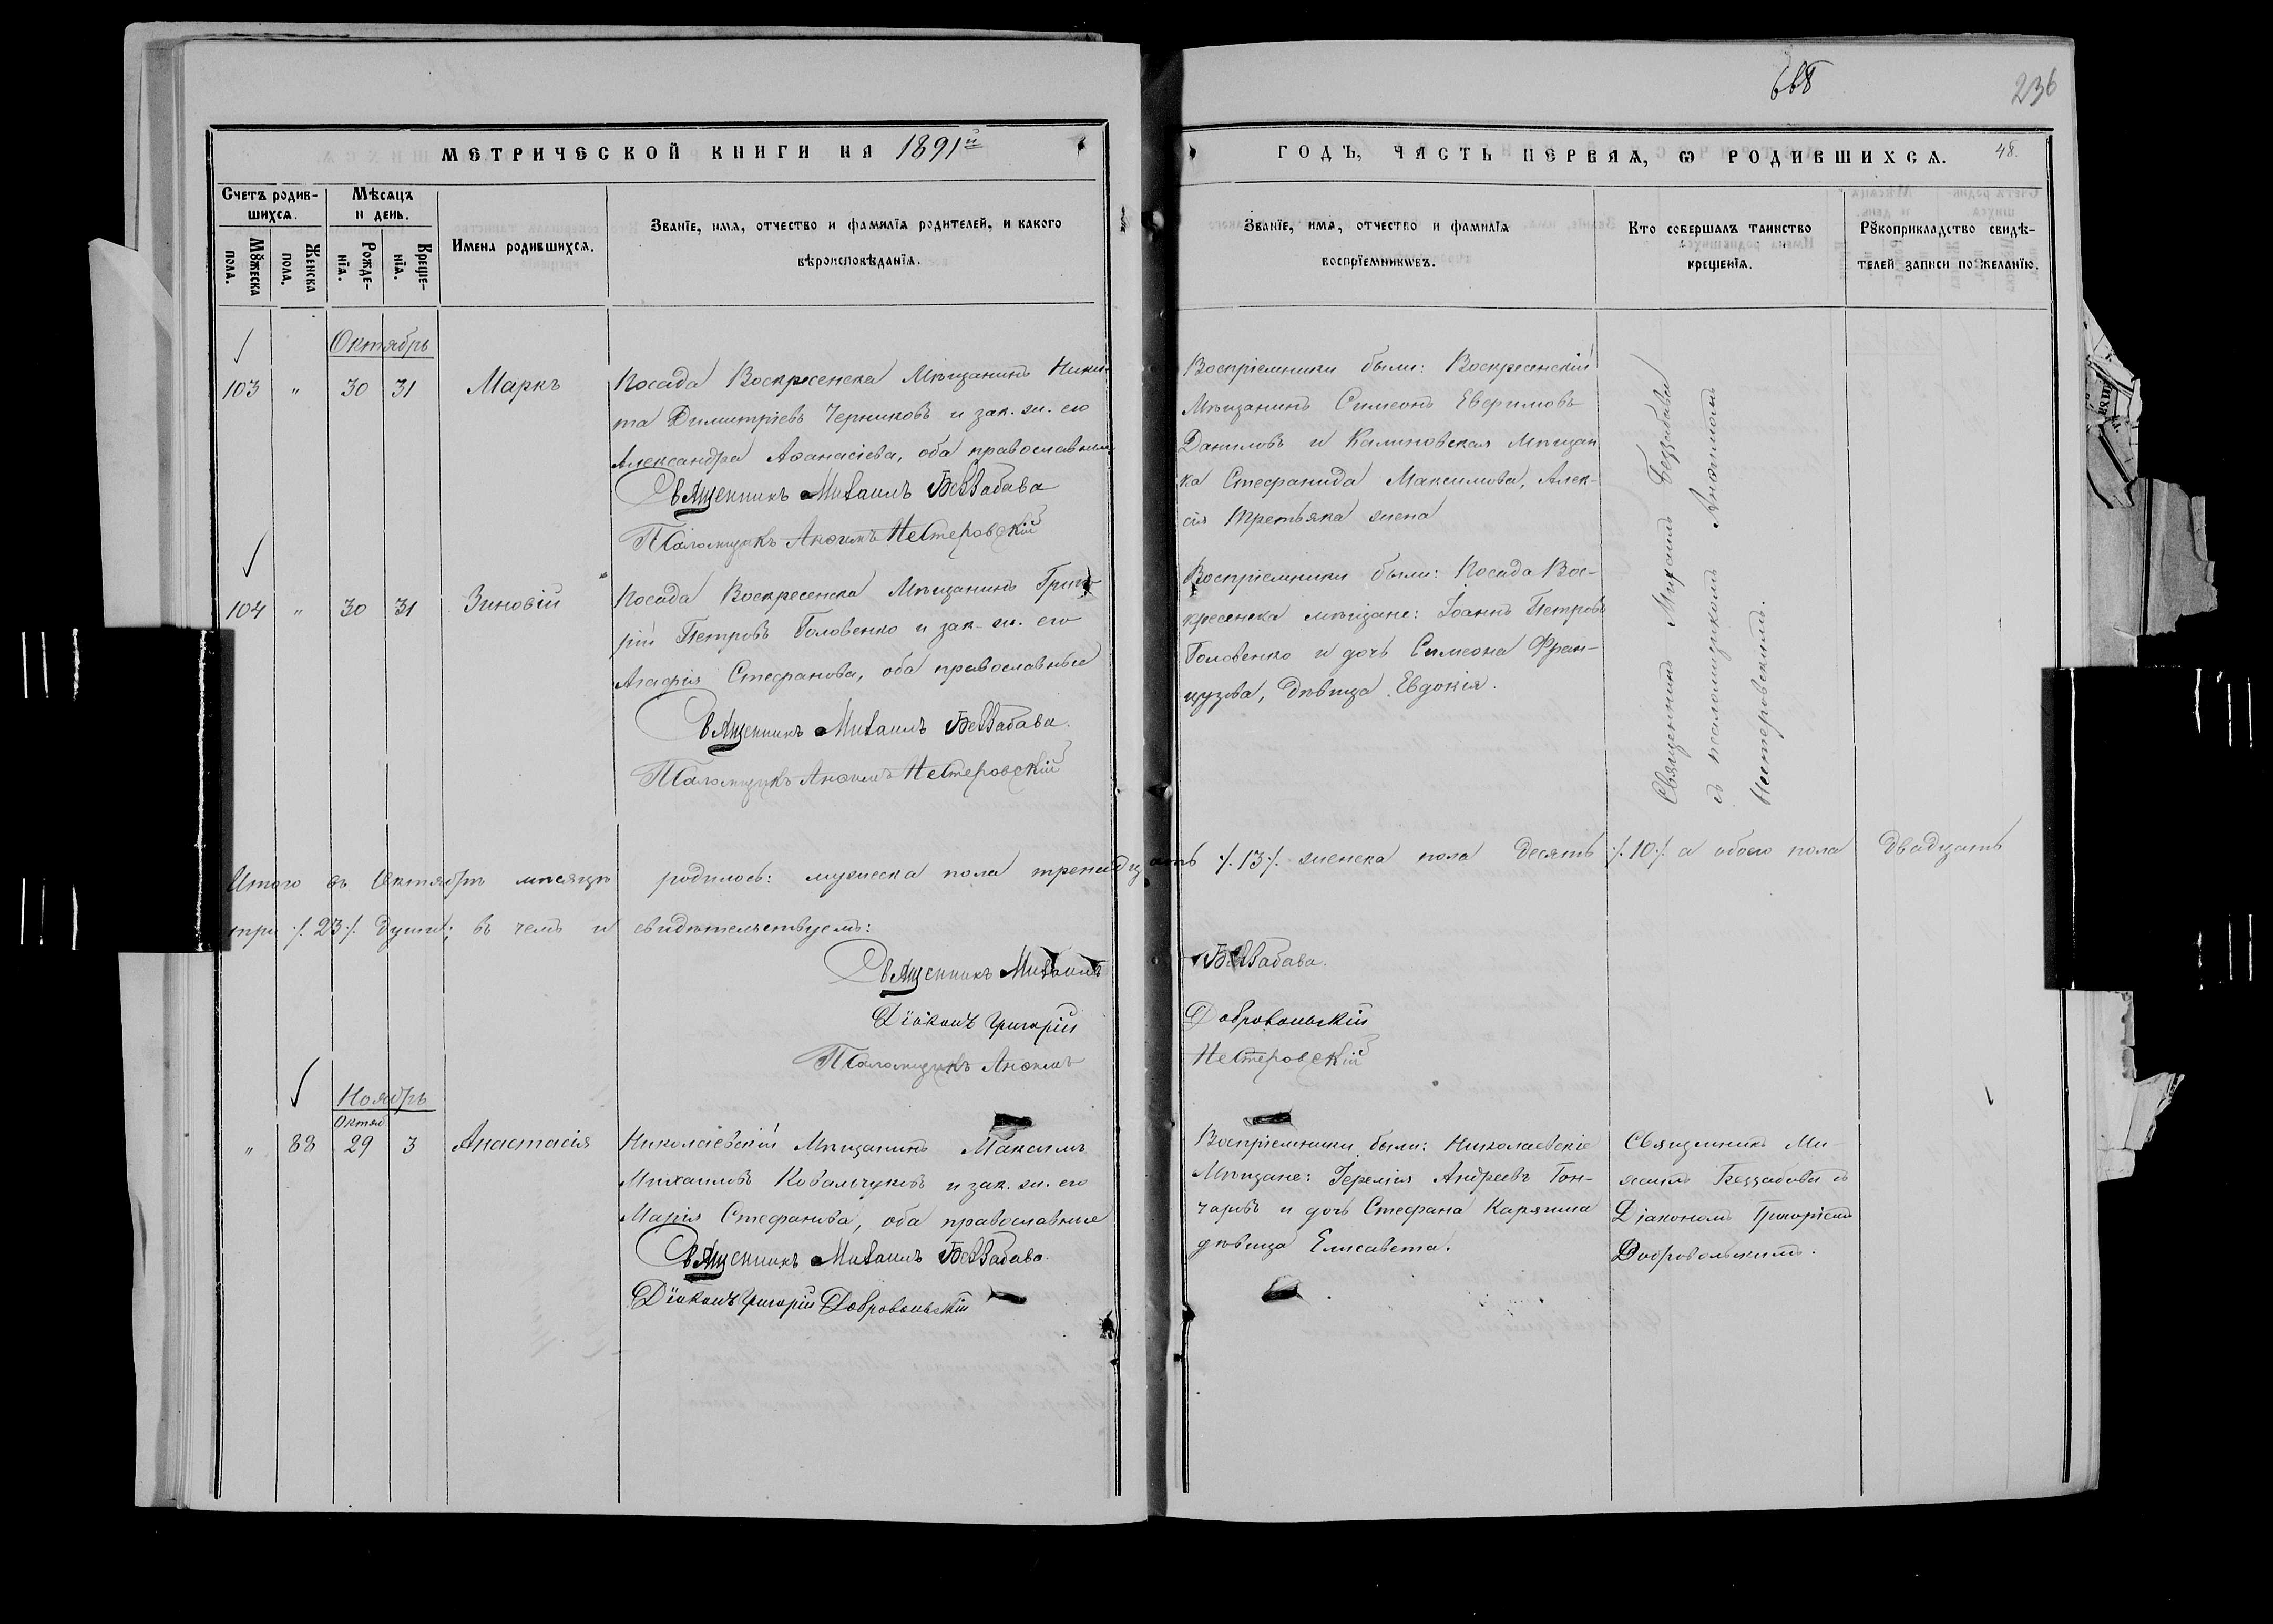 236
МЕТРИЧЕСКОЙ КНИГИ НА 1891й
ГОДЪ, ЧАСТЬ ПЕРВАЯ, Ѡ РОДИВШИХСЯ. 48.
Счетъ родив-
шихся.
Мꙋжеска
пола.
Женска
пола.
Мѣсяцъ
и день.
Рожде-
нїя.
Креще-
нїя.
Имена родившихся.
Званїе, имя, отчество и фамилїя родителей, и какого
вѣроисповѣданїя.
Званїе, имя, отчество и фамилїя
воспрїемникѡвъ.
Кто совершалъ таинство
крещенїя.
Рꙋкоприкладство свидѣ-
телей записи по желанїю.
Октябрь
103 " 30 31 Маркъ
Посада Воскресенска Мѣщанинъ Ники-
та Димитріевъ Черниковъ и зак. ж. его
Александра Аѳанасіева, оба православные
Священникъ Михаилъ Беззабава
Псаломщикъ Анѳимъ Нестеровскій
Воспріемники были: Воскресенскій
Мѣщанинъ Симеонъ Евфимовъ
Даниловъ и Калиновская Мѣщан
ка Стефанида Максимова, Алек-
сія Третьяка жена
104 " 30 31 Зиновій
Посада Воскресенска Мѣщанинъ Григо
рій Петровъ Головенко и зак. ж. его
Агафія Стефанова, оба православные
Священникъ Михаилъ Беззабава.
Псаломщикъ Анѳимъ Нестеровскій
Воспріемники были: Посада Вос-
кресенска мѣщане: Іоаннъ Петровъ
Головенко и дочь Симеона Фран-
цузова, дѣвица Евдокія.
Священникъ Михаилъ Беззабава
съ псаломщикомъ Анѳимомъ
Нестеровскимъ.
Итого въ Октябрѣ мѣсяцѣ родилось: мужеска пола тренадцать /.13/. женска пола десять /.10/. а обоего пола двадцать
три /.23/. души; въ чемъ и свидѣтельствуемъ:
Священникъ Михаилъ Беззабава.
Діаконъ Григорій Добровольскій
Псаломщикъ Анѳимъ Нестеровскій
Ноябрь
Октяб
" 88 29 3 Анастасія
Николаевскій Мѣщанинъ Максимъ
Михаиловъ Ковальчуковъ и зак. ж. его
Марія Стефанова, оба православные
Священникъ Михаилъ Беззабава.
Діаконъ Григорій Добровольскій
Воспріемники были: Николаевскіе
Мѣщане: Іеремія Андреевъ Гон-
чаровъ и дочь Стефана Карягина
дѣвица Елисавета.
Священникъ Ми-
хаилъ Беззабава съ
Діакономъ Григоріемъ
Добровольскимъ.